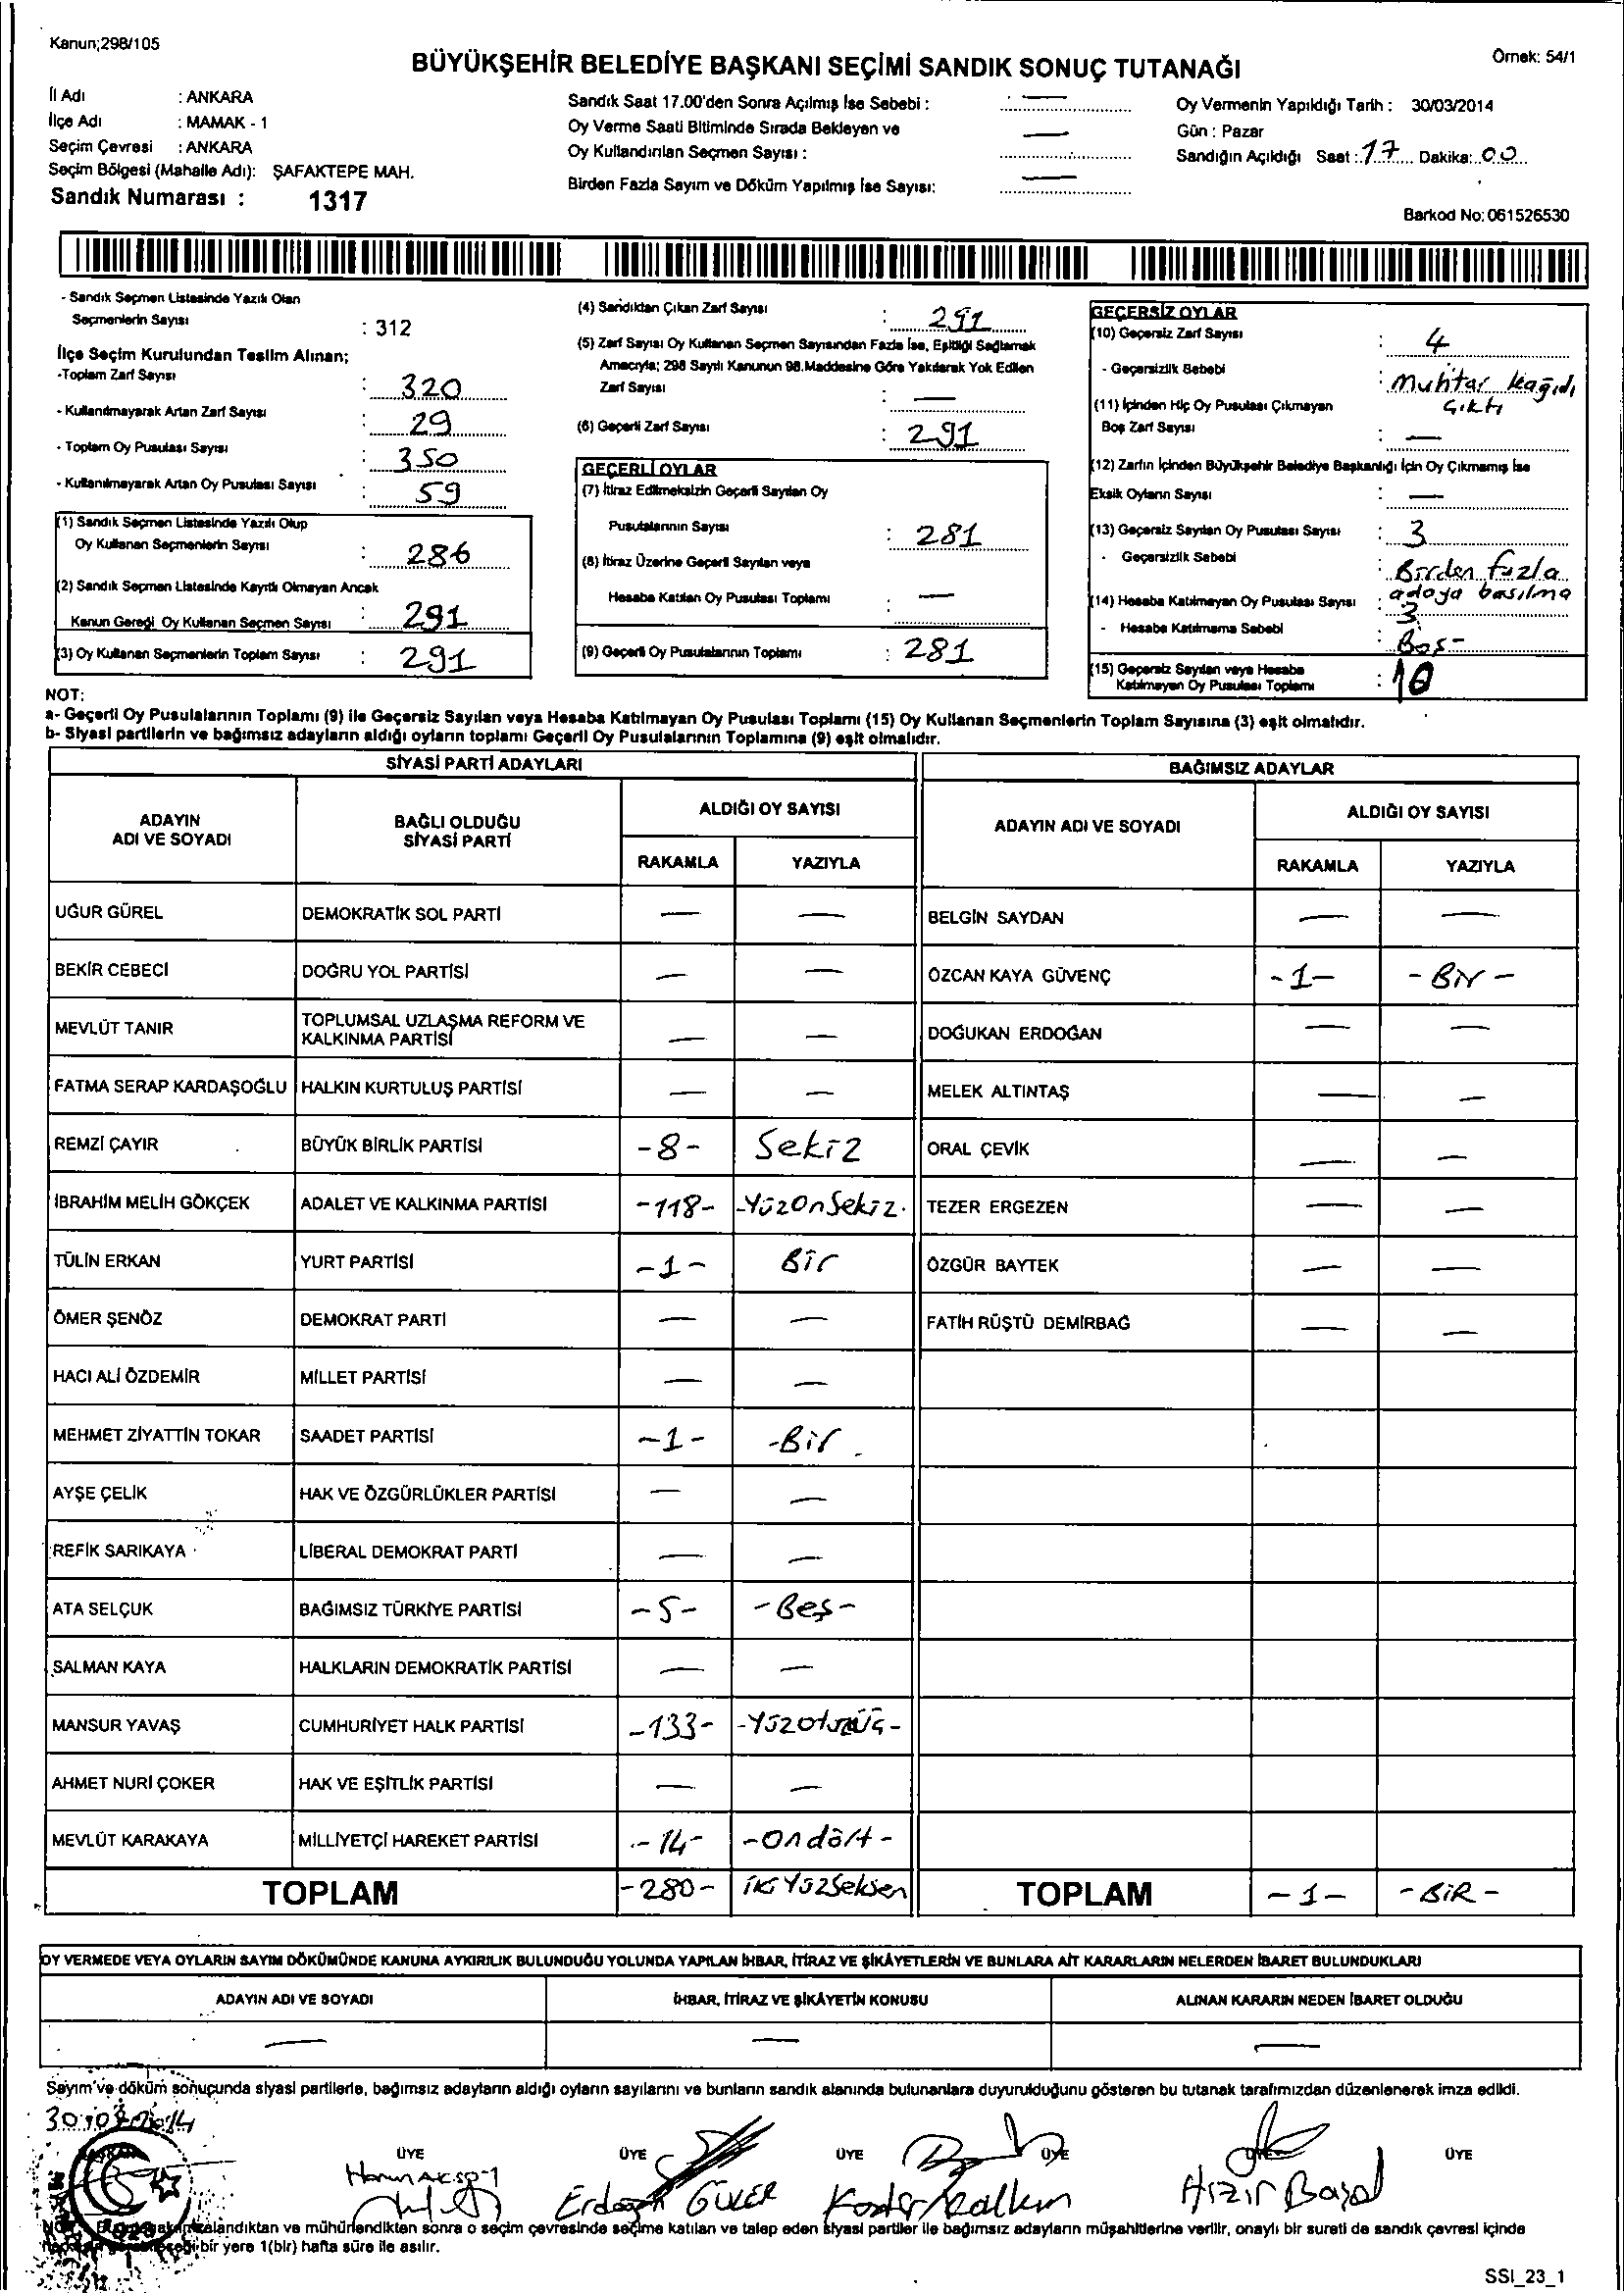 Kanun;298/105
BÜYÜKŞEHİR BELEDİYE BAŞKANI SEÇİMİ SANDIK SONUÇ TUTANAĞI
Örnek: 54/1
İl Adı : ANKARA
İlçe Adı : MAMAK - 1
Seçim Çevresi : ANKARA
Seçim Bölgesi (Mahalle Adı): ŞAFAKTEPE MAH.
Sandık Numarası : 1317
Sandık Saat 17.00'den Sonra Açılmış İse Sebebi : —
Oy Verme Saati Bitiminde Sırada Bekleyen ve
Oy Kullandırılan Seçmen Sayısı : —
Birden Fazla Sayım ve Döküm Yapılmış İse Sayısı: —
Oy Vermenin Yapıldığı Tarih : 30/03/2014
Gün : Pazar
Sandığın Açıldığı Saat : 17 Dakika: 00
Barkod No: 061526530
- Sandık Seçmen Listesinde Yazılı Olan
Seçmenlerin Sayısı : 312
İlçe Seçim Kurulundan Teslim Alınan;
-Toplam Zarf Sayısı : 320
- Kullanılmayarak Artan Zarf Sayısı : 29
- Toplam Oy Pusulası Sayısı : 350
- Kullanılmayarak Artan Oy Pusulası Sayısı : 59
(1) Sandık Seçmen Listesinde Yazılı Olup
Oy Kullanan Seçmenlerin Sayısı : 286
(2) Sandık Seçmen Listesinde Kayıtlı Olmayan Ancak
Kanun Gereği Oy Kullanan Seçmen Sayısı : 291
(3) Oy Kullanan Seçmenlerin Toplam Sayısı : 291
(4) Sandıktan Çıkan Zarf Sayısı : 291
(5) Zarf Sayısı Oy Kullanan Seçmen Sayısından Fazla İse, Eşitliği Sağlamak
Amacıyla; 298 Sayılı Kanunun 98.Maddesine Göre Yakılarak Yok Edilen
Zarf Sayısı : —
(6) Geçerli Zarf Sayısı : 291
GEÇERLİ OYLAR
(7) İtiraz Edilmeksizin Geçerli Sayılan Oy
Pusulalarının Sayısı : 281
(8) İtiraz Üzerine Geçerli Sayılan veya
Hesaba Katılan Oy Pusulası Toplamı : —
(9) Geçerli Oy Pusulalarının Toplamı : 281
GEÇERSİZ OYLAR
(10) Geçersiz Zarf Sayısı : 4
- Geçersizlik Sebebi : Muhtar kağıdı
çıktı
(11) İçinden Hiç Oy Pusulası Çıkmayan
Boş Zarf Sayısı : —
(12) Zarfın İçinden Büyükşehir Belediye Başkanlığı İçin Oy Çıkmamış İse
Eksik Oyların Sayısı : —
(13) Geçersiz Sayılan Oy Pusulası Sayısı : 3
- Geçersizlik Sebebi : Birden fazla
adaya basılma
(14) Hesaba Katılmayan Oy Pusulası Sayısı : 3
- Hesaba Katılmama Sebebi : Boş-
(15) Geçersiz Sayılan veya Hesaba
Katılmayan Oy Pusulası Toplamı : 10
NOT:
a- Geçerli Oy Pusulalarının Toplamı (9) ile Geçersiz Sayılan veya Hesaba Katılmayan Oy Pusulası Toplamı (15) Oy Kullanan Seçmenlerin Toplam Sayısına (3) eşit olmalıdır.
b- Siyasi partilerin ve bağımsız adayların aldığı oyların toplamı Geçerli Oy Pusulalarının Toplamına (9) eşit olmalıdır.
SİYASİ PARTİ ADAYLARI
ADAYIN ADI VE SOYADI
BAĞLI OLDUĞU SİYASİ PARTİ
ALDIĞI OY SAYISI
RAKAMLA YAZIYLA
UĞUR GÜREL DEMOKRATİK SOL PARTİ — —
BEKİR CEBECİ DOĞRU YOL PARTİSİ — —
MEVLÜT TANIR TOPLUMSAL UZLAŞMA REFORM VE KALKINMA PARTİSİ — —
FATMA SERAP KARDAŞOĞLU HALKIN KURTULUŞ PARTİSİ — —
REMZİ ÇAYIR BÜYÜK BİRLİK PARTİSİ -8- Sekiz
İBRAHİM MELİH GÖKÇEK ADALET VE KALKINMA PARTİSİ -118- -Yüzonsekiz.
TÜLİN ERKAN YURT PARTİSİ -1- Bir
ÖMER ŞENÖZ DEMOKRAT PARTİ — —
HACI ALİ ÖZDEMİR MİLLET PARTİSİ — —
MEHMET ZİYATTİN TOKAR SAADET PARTİSİ -1- -Bir
AYŞE ÇELİK HAK VE ÖZGÜRLÜKLER PARTİSİ — —
REFİK SARIKAYA LİBERAL DEMOKRAT PARTİ — —
ATA SELÇUK BAĞIMSIZ TÜRKİYE PARTİSİ -5- -Beş-
SALMAN KAYA HALKLARIN DEMOKRATİK PARTİSİ — —
MANSUR YAVAŞ CUMHURİYET HALK PARTİSİ -133- -Yüzotuzüç-
AHMET NURİ ÇOKER HAK VE EŞİTLİK PARTİSİ — —
MEVLÜT KARAKAYA MİLLİYETÇİ HAREKET PARTİSİ -14- -Ondört-
TOPLAM -280- ikiYüzSeksen
BAĞIMSIZ ADAYLAR
ADAYIN ADI VE SOYADI
ALDIĞI OY SAYISI
RAKAMLA YAZIYLA
BELGİN SAYDAN — —
ÖZCAN KAYA GÜVENÇ -1- -Bir-
DOĞUKAN ERDOĞAN — —
MELEK ALTINTAŞ — —
ORAL ÇEVİK — —
TEZER ERGEZEN — —
ÖZGÜR BAYTEK — —
FATİH RÜŞTÜ DEMİRBAĞ — —
TOPLAM -1- -BİR-
OY VERMEDE VEYA OYLARIN SAYIM DÖKÜMÜNDE KANUNA AYKIRILIK BULUNDUĞU YOLUNDA YAPILAN İHBAR, İTİRAZ VE ŞİKÂYETLERİN VE BUNLARA AİT KARARLARIN NELERDEN İBARET BULUNDUKLARI
ADAYIN ADI VE SOYADI İHBAR, İTİRAZ VE ŞİKÂYETİN KONUSU ALINAN KARARIN NEDEN İBARET OLDUĞU
— — —
Sayım ve döküm sonuçunda siyasi partilerle, bağımsız adayların aldığı oyların sayılarını ve bunların sandık alanında bulunanlara duyurulduğunu gösteren bu tutanak tarafımızdan düzenlenerek imza edildi.
30.03.2014
ÜYE ÜYE ÜYE ÜYE ÜYE ÜYE
Erdoğan GÜLER
Hızır
kalandıktan ve mühürlendikten sonra o seçim çevresinde seçime katılan ve talep eden siyasi partiler ile bağımsız adayların müşahitlerine verilir, onaylı bir sureti de sandık çevresi içinde
bir yere 1(bir) hafta süre ile asılır.
SSI_23_1